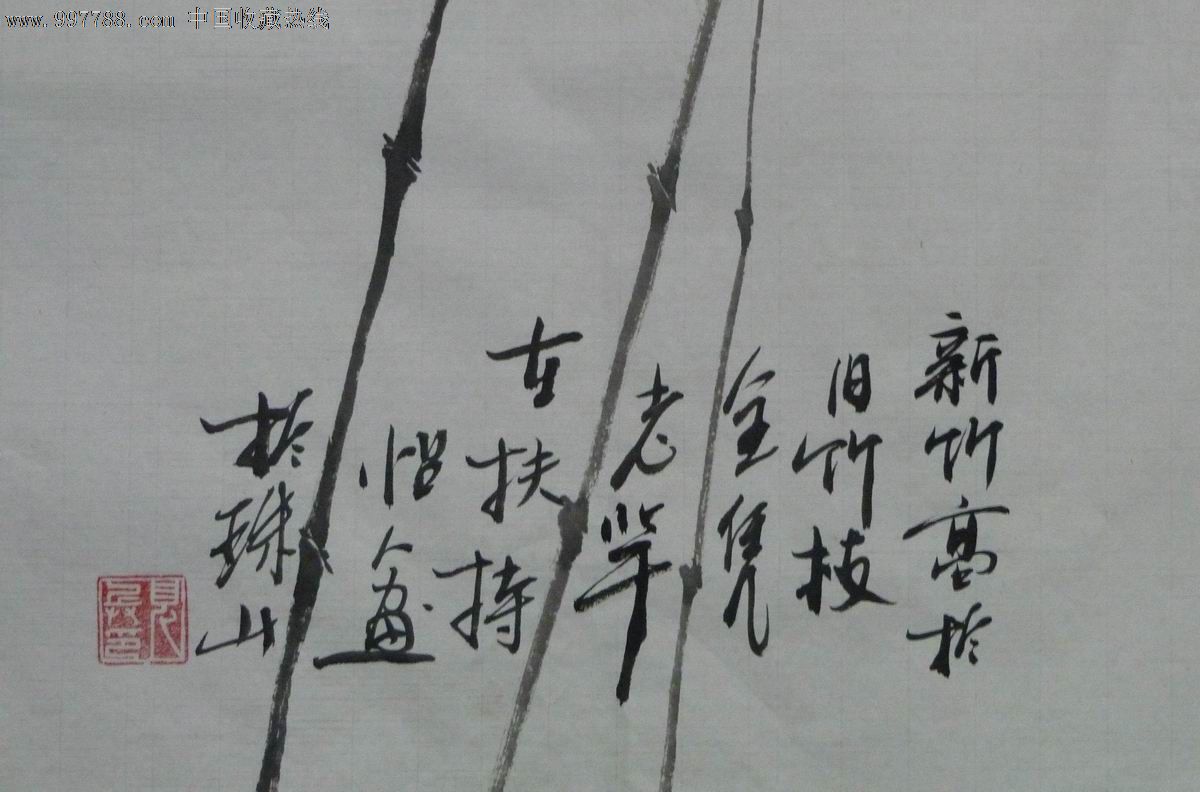 www.997788.com 中国收藏热线
新竹高於
旧竹枝
全凭
老竿
在扶持
画
於珠山